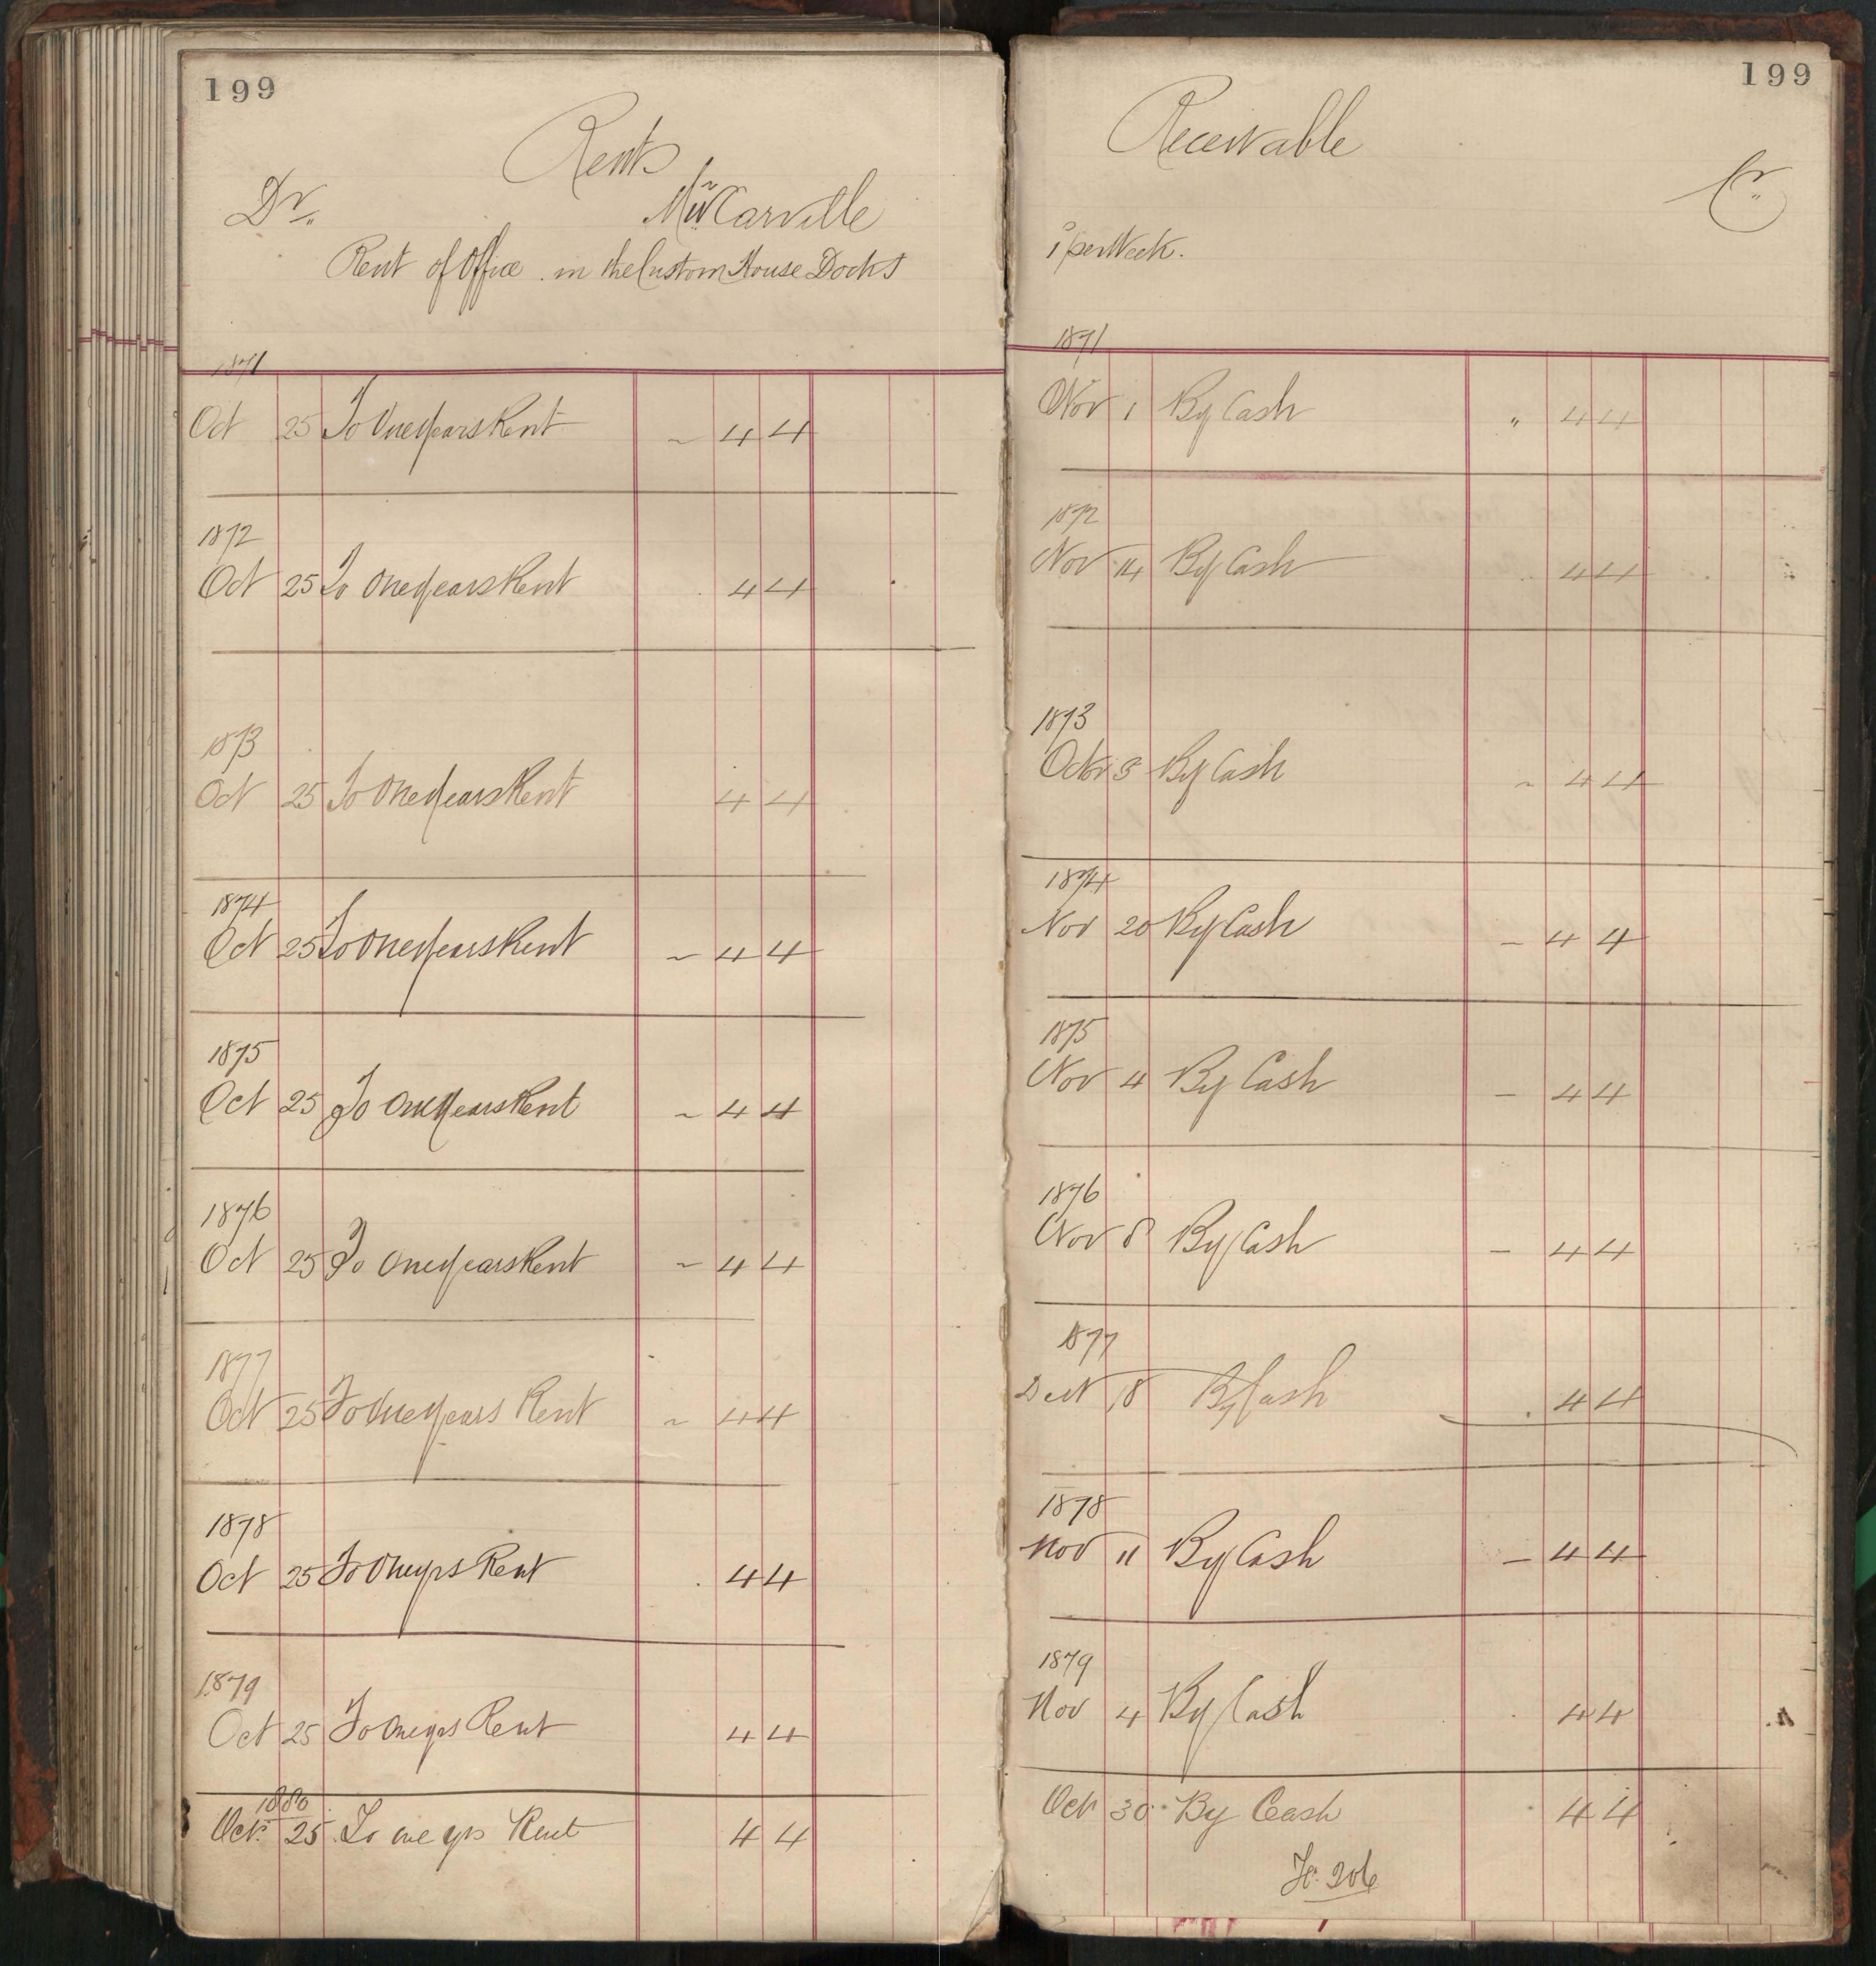 199
Rents
Dr.
Carville
Rent of Office in the Custom House Docks
1871
Oct 25 To One Years Rent ~ 4 4
1872
Oct 25 To One Years Rent 4 4
1873
Oct 25 To One Years Rent 4 4
1874
Oct 25 To One Years Rent ~ 4 4
1875
Oct 25 To One Years Rent ~ 4 4
1876
Oct 25 To One Years Rent ~ 4 4
1877
Oct 25 To One Years Rent ~ 4 4
1878
Oct 25 To One yrs Rent 4 4
1879
Oct 25 To One yrs Rent 4 4
1880
Oct 25 To one yrs Rent 4 4
199
Receivable
Cr.
per Week.
1871
Nov 1 By Cash " 4 4
1872
Nov 14 By Cash 4 4
1873
Octr By Cash ~ 4 4
1874
Nov 20 By Cash – 4 4
1875
Nov 4 By Cash – 4 4
1876
Nov 8 By Cash – 4 4
1877
18 By Cash 4 4
1878
Nov 11 By Cash – 4 4
1879
Nov 4 By Cash 4 4
Oct 30 By Cash 4 4
Fo. 206